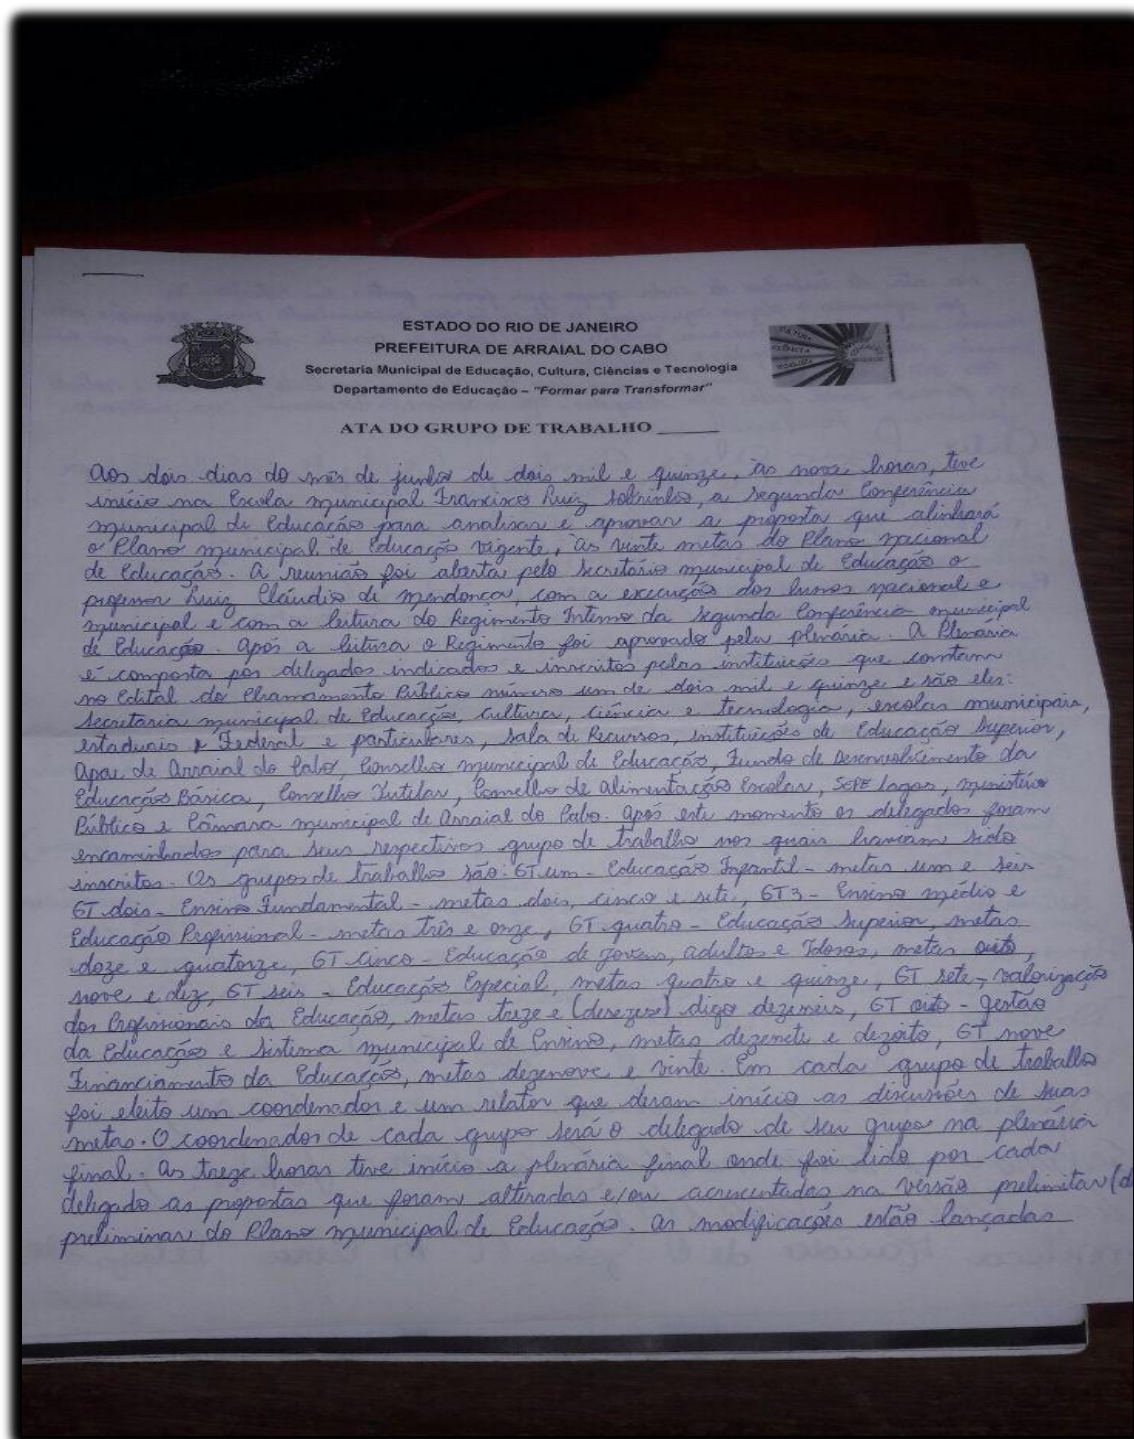 ESTADO DO RIO DE JANEIRO
PREFEITURA DE ARRAIAL DO CABO
Secretaria Municipal de Educação, Cultura, Ciências e Tecnologia
Departamento de Educação – "Formar para Transformar"
ATA DO GRUPO DE TRABALHO ______
Aos dois dias do mês de junho de dois mil e quinze, às nove horas, teve
início na Escola municipal Francisco Ruiz Sobrinho, a Segunda Conferência
municipal de Educação para analisar e aprovar a proposta que alinhará
o Plano municipal de Educação vigente, às vinte metas do Plano nacional
de Educação. A reunião foi aberta pelo Secretário municipal de Educação o
professor Luiz Cláudio de mendonça, com a execução dos hinos nacional e
municipal e com a leitura do Regimento Interno da Segunda Conferência municipal
de Educação. Após a leitura o Regimento foi aprovado pela plenária. A Plenária
é composta por delegados indicados e inscritos pelas instituições que constam
no Edital do Chamamento Público número um de dois mil e quinze e são eles:
Secretaria municipal de Educação, Cultura, Ciência e tecnologia, escolas municipais,
estaduais, Federal e particulares, Sala de Recursos, instituições de Educação Superior,
Apae de Arraial do Cabo, Conselho municipal de Educação, Fundo de Desenvolvimento da
Educação Básica, Conselho Tutelar, Conselho de Alimentação Escolar, SEPE Lagos, ministério
Público e Câmara municipal de Arraial do Cabo. Após este momento os delegados foram
encaminhados para seus respectivos grupo de trabalho nos quais haviam sido
inscritos. Os grupos de trabalho são: GT um - Educação Infantil - metas um e seis
GT dois - Ensino Fundamental - metas dois, cinco e sete, GT 3 - Ensino médio e
Educação Profissional - metas três e onze, GT quatro - Educação Superior, metas
doze e quatorze, GT Cinco - Educação de Jovens, adultos e Idosos, metas oito,
nove e dez, GT seis - Educação Especial, metas quatro e quinze, GT sete - valorização
dos Profissionais da Educação, metas treze e (desezese) digo dezesseis, GT oito - gestão
da Educação e Sistema municipal de Ensino, metas dezenete e dezoito, GT nove
Financiamento da Educação, metas dezenove e vinte. Em cada grupo de trabalho
foi eleito um coordenador e um relator que deram início as discussões de suas
metas. O coordenador de cada grupo será o delegado de seu grupo na plenária
final. As treze horas teve início a plenária final onde foi lido por cada
delegado as propostas que foram alteradas e/ou acrescentadas na versão prelimitar (d
preliminar do Plano municipal de Educação. As modificações estão lançadas